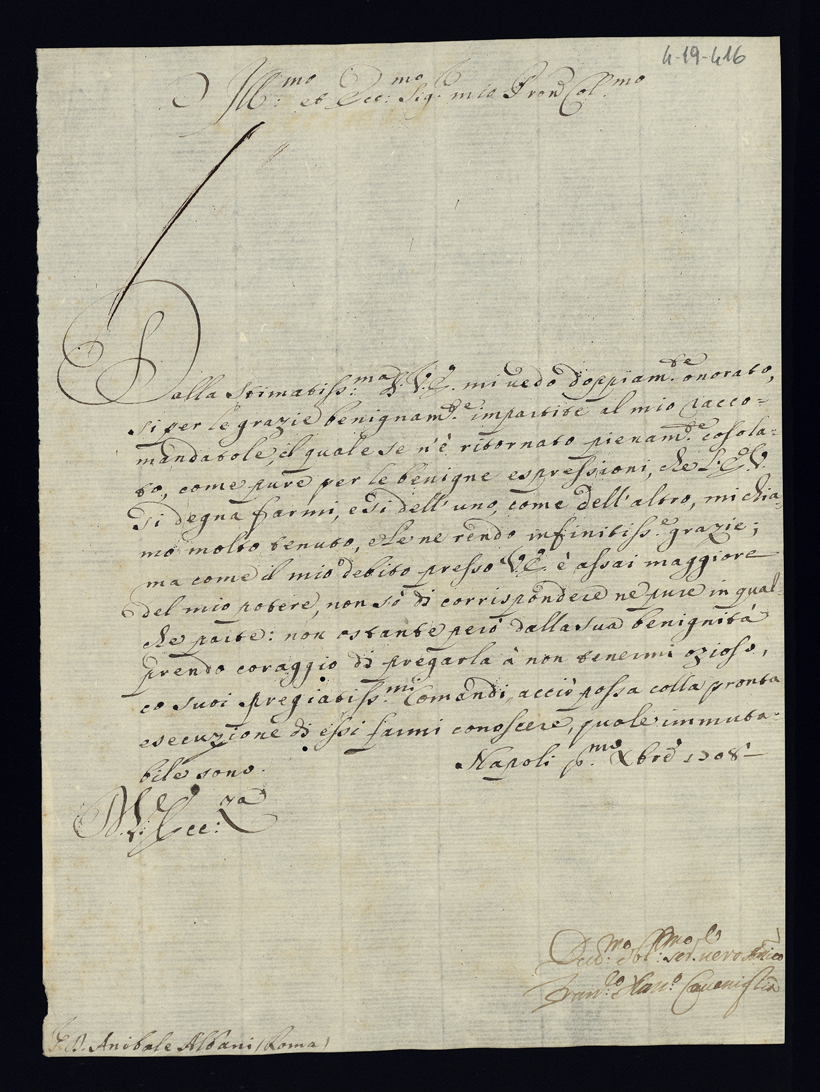 4-19-416
Ill.mo et Ecc.mo Sig.r mio Pron Col.mo
Dalla Stimatiss.ma di V.E. mi vedo doppiam.te onorato,
si per le grazie benignam.te impartite al mio racco=
mandatole, il quale se n'è ritornato pienam.te cosola=
to, come pure per le benigne espressioni, che L'E.V.
si degna farmi, e si dell'uno, come dell'altro, mi chia=
mo molto tenuto, e le ne rendo infinitiss.e grazie;
ma come il mio debito presso V.E. è assai maggiore
del mio potere, non sò di corrispondere ne pure in qual=
che parte: non ostante però dalla sua benignità
prendo coraggio di pregarla à non tenermi ozioso,
co suoi pregiatiss.mi Comandi, acciò possa colla pronta
esecuzione di essi farmi conoscere, quale immuta=
bile sono. Napoli p.mo Xbre 1708
D. V.ra Ecc.za
Dev.mo Obl.mo ser. vero Amico
Fran.co Caveniglia
D. Anibale Albani (Roma)